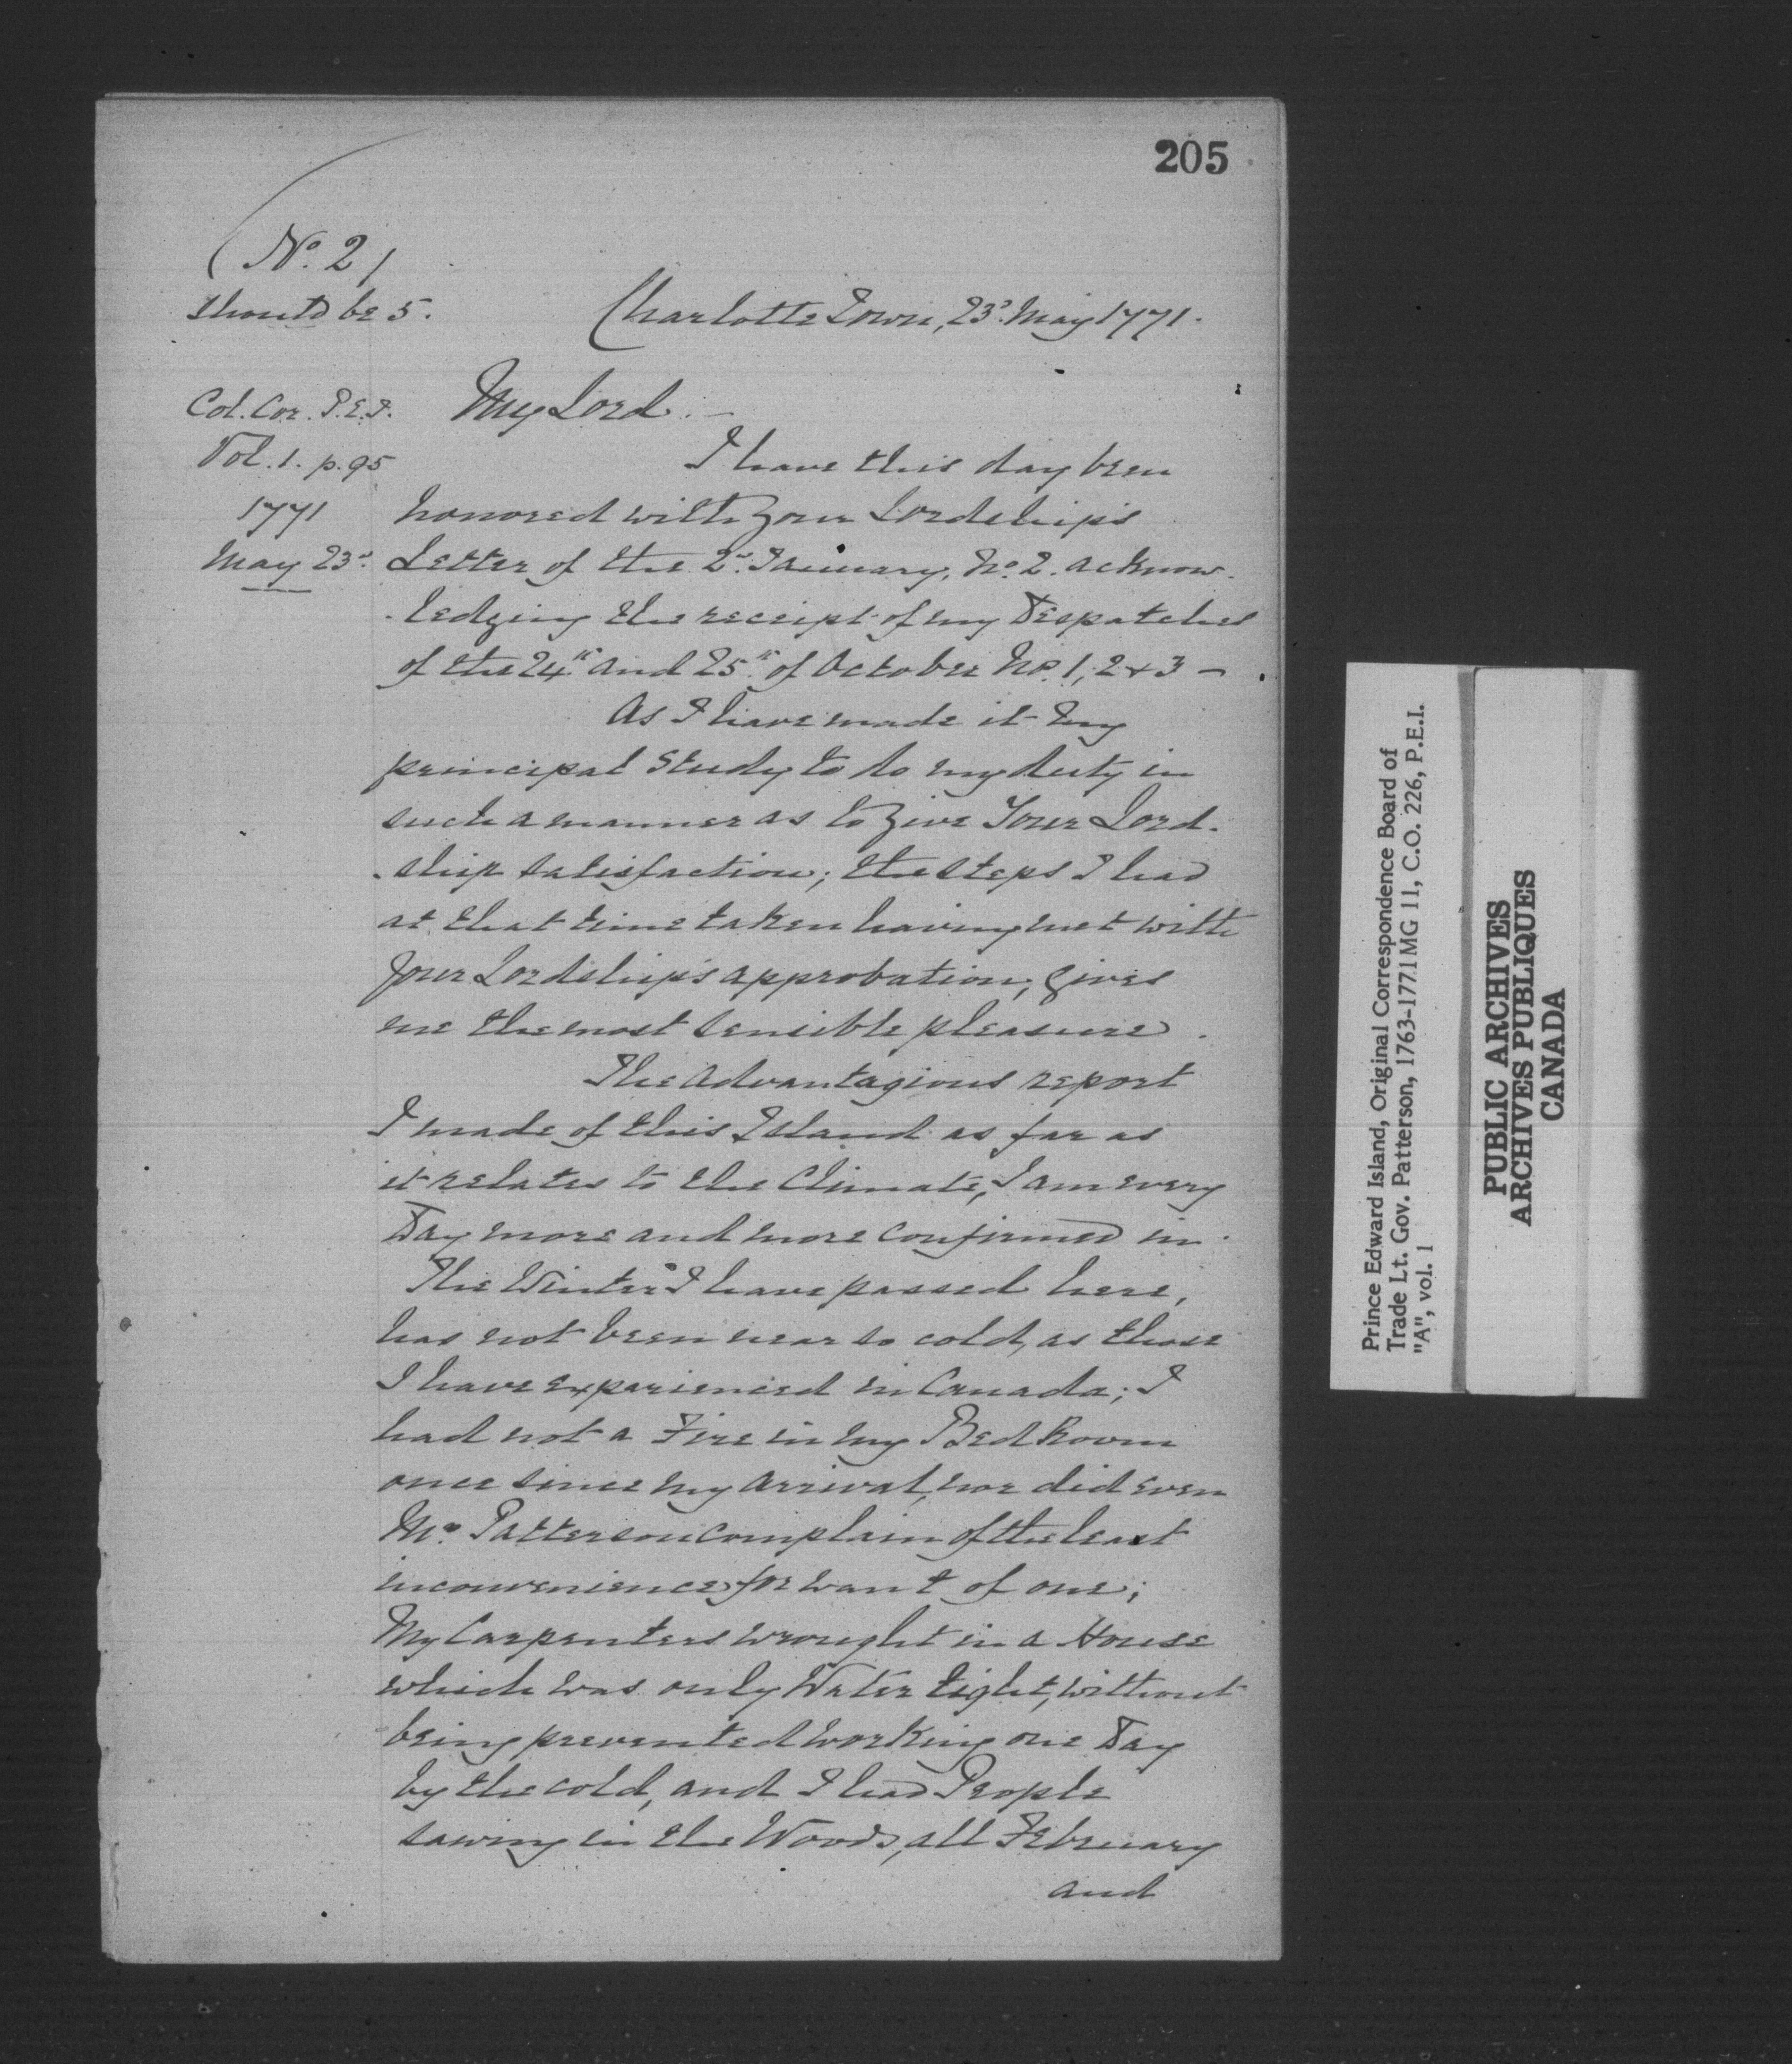 205
(No. 2)
should be 5.
Charlotte Town, 23d. May 1771.
Col. Cor. P.E.I.
Vol. 1. p. 95
1771
May 23d.
My Lord. –
I have this day been
honored with Your Lordship's
Letter of the 2d. January, No. 2. acknow-
-ledging the receipt of my Despatches
of the 24th. and 25th. of October No. 1, 2 & 3 –
As I have made it my
principal Study to do my duty in
such a manner as to give Your Lord-
-ship satisfaction; the steps I had
at that time taken having met with
Your Lordship's approbation, gives
me the most sensible pleasure.
The advantagious report
I made of this Island as far as
it relates to the Climate, I am every
Day more and more confirmed in.
The Winter I have passed here,
has not been near so cold, as those
I have experienced in Canada; I
had not a Fire in my Bed Room
once since my arrival, nor did even
Mrs. Patterson complain of the least
inconvenience for want of one;
My Carpenters wrought in a House
which was only Water tight, without
being prevented working one Day
by the cold, and I had People
sawing in the Woods, all February
and
Prince Edward Island, Original Correspondence Board of
Trade Lt. Gov. Patterson, 1763-1771 MG 11, C.O. 226, P.E.I.
"A", vol. 1
PUBLIC ARCHIVES
ARCHIVES PUBLIQUES
CANADA